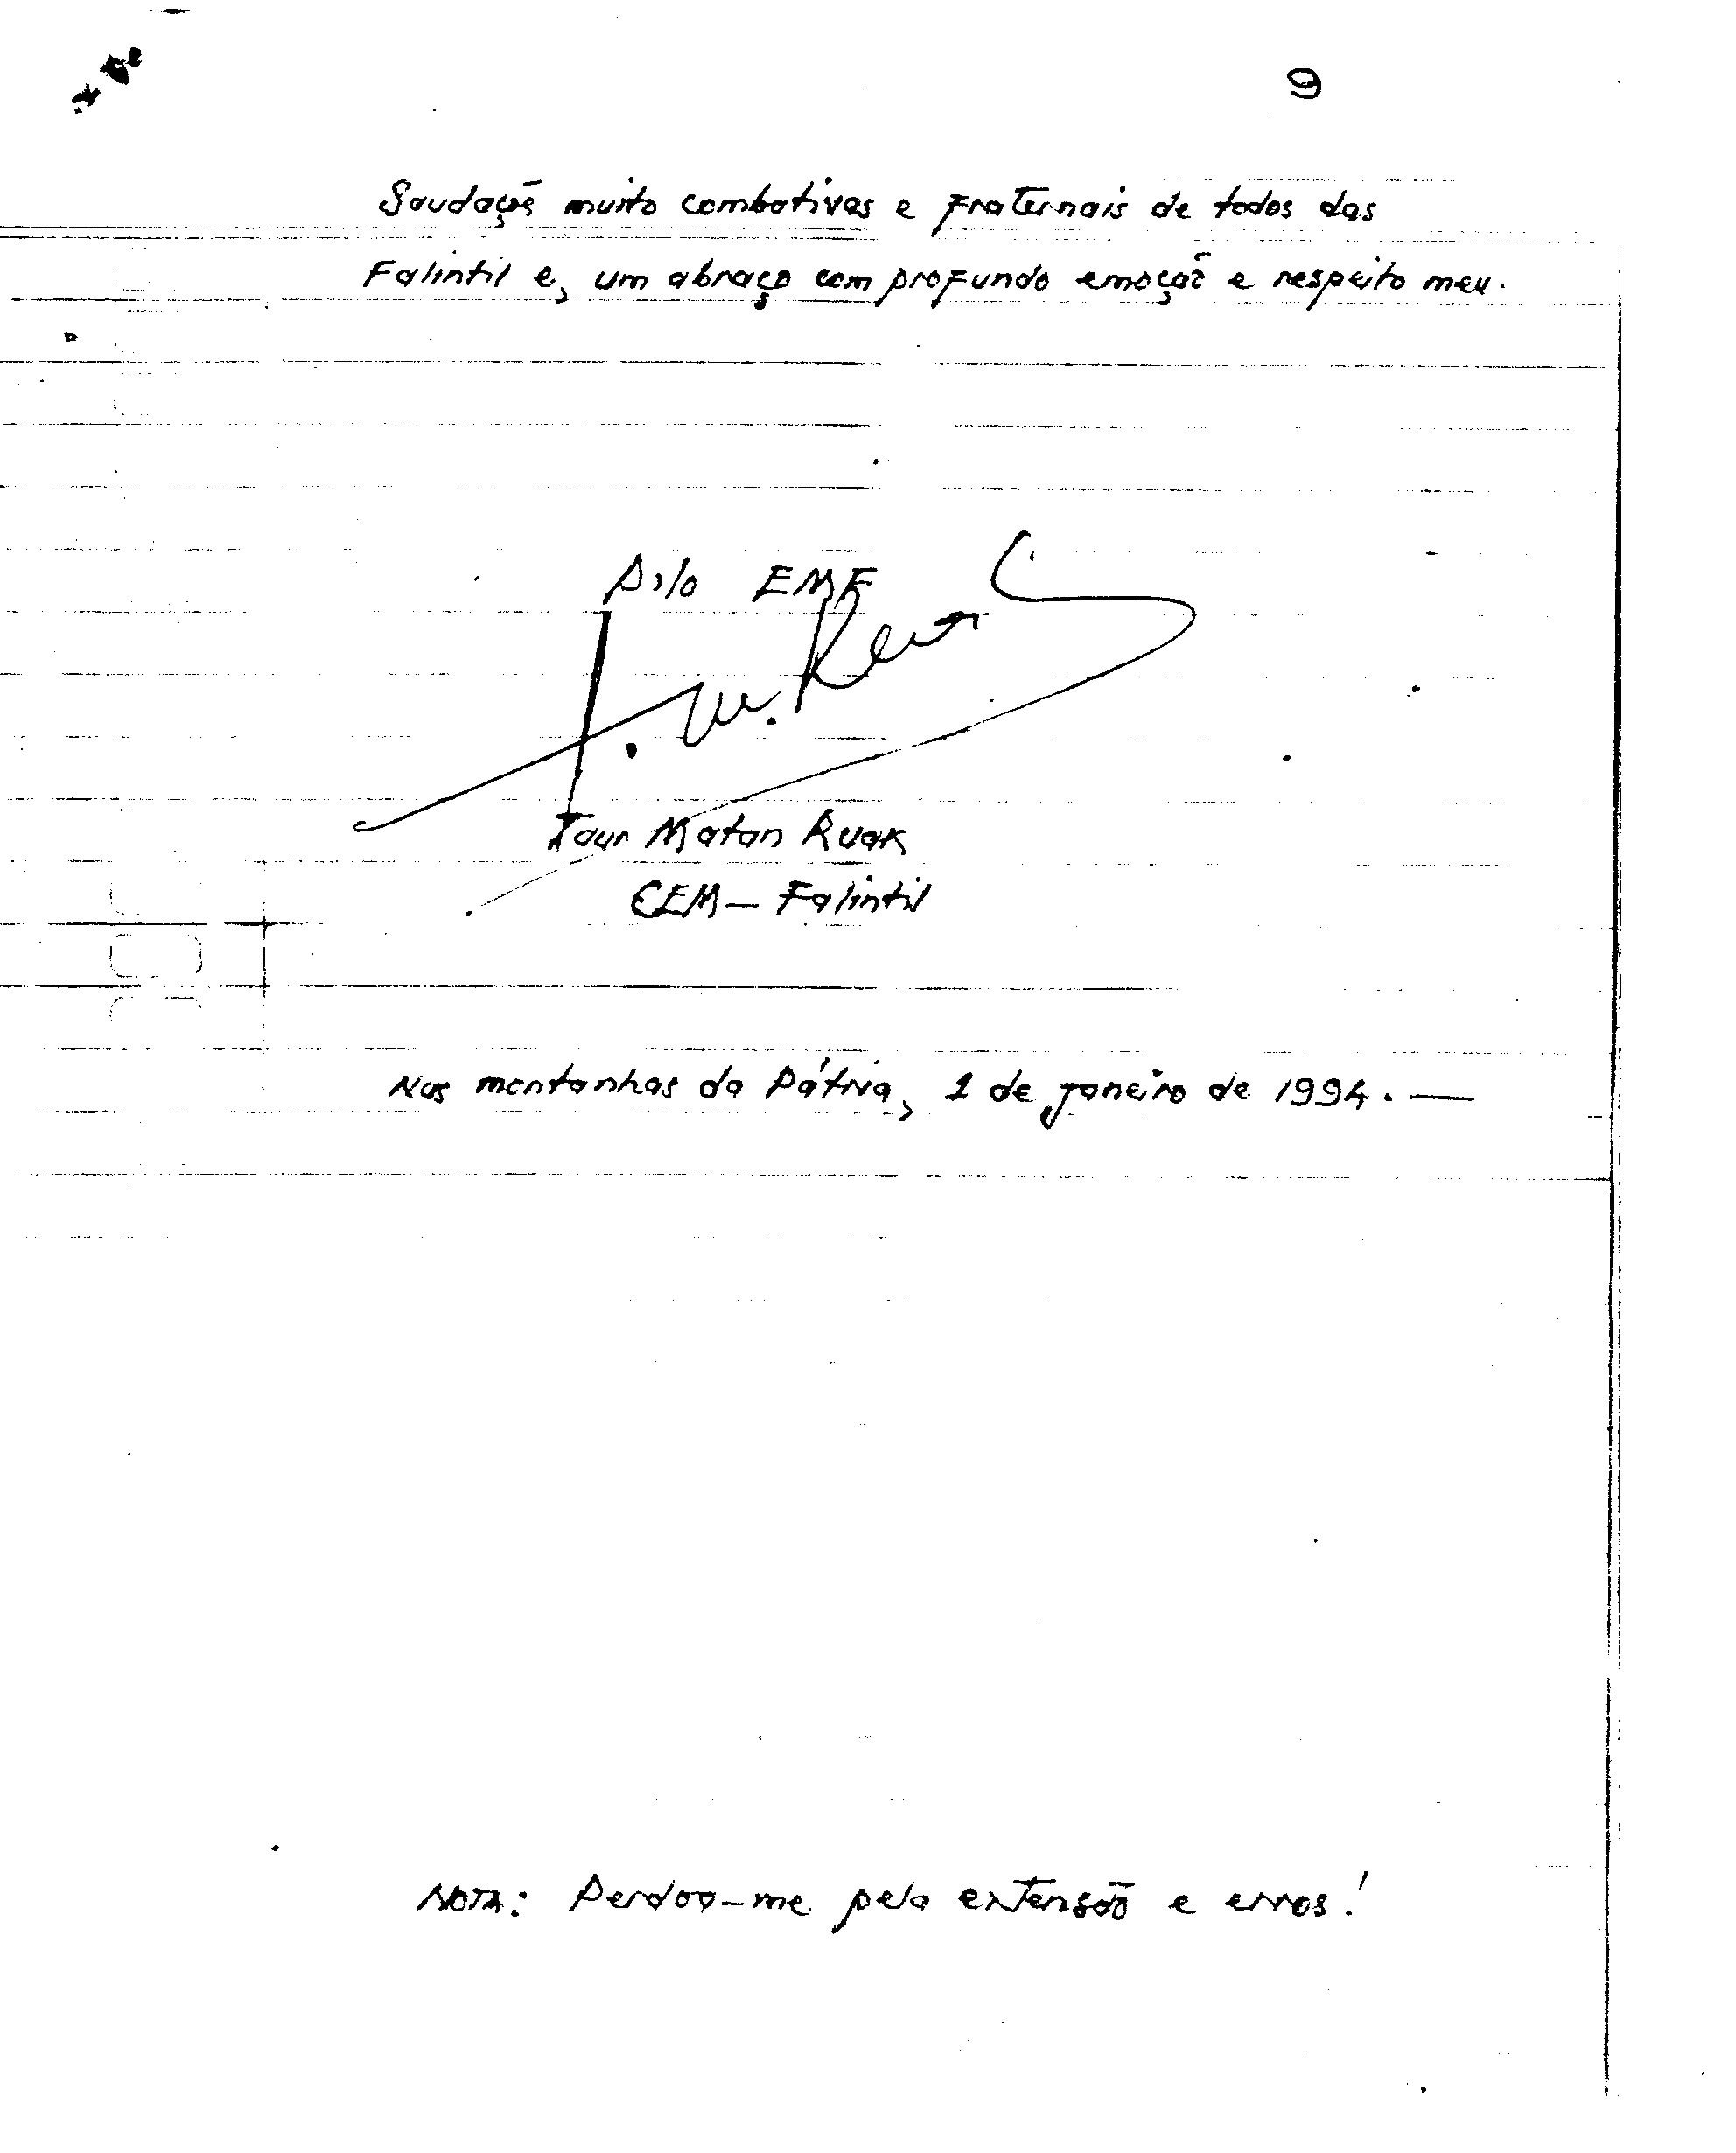 9
Saudações muito combativas e fraternais de todos das
Falintil e, um abraço com profundo emoção e respeito meu.
P'lo EMF
T. M. Ruak
Taur Matan Ruak
CEM - Falintil
Nas montanhas da Pátria, 1 de janeiro de 1994. —
NOTA: Perdoo-me pela extensão e erros!